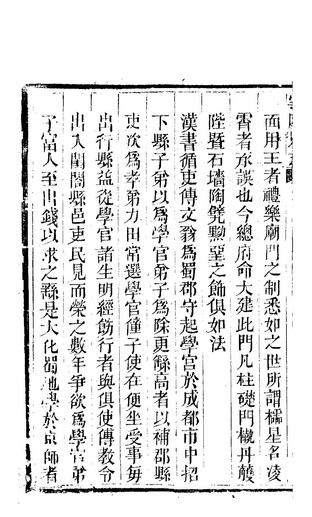 面用王者禮樂廟門之制悉如之世所謂櫺星名凌
霄者承誤也今總府命大建此門凡柱礎門櫬丹雘
陛暨石墻陶甓黝堊之飾俱如法
漢書循吏傳文翁為蜀郡守起學宫於成都市中招
下縣子弟以為學官弟子為除更繇高者以補郡縣
吏次為孝弟力田常選學官僮子使在便坐受事每
出行縣益從學官諸生明經飭行者與俱使傳教令
出入閨閤縣邑吏民見而榮之數年爭欲為學官弟
子富人至出錢以求之繇是大化蜀地學於京師者